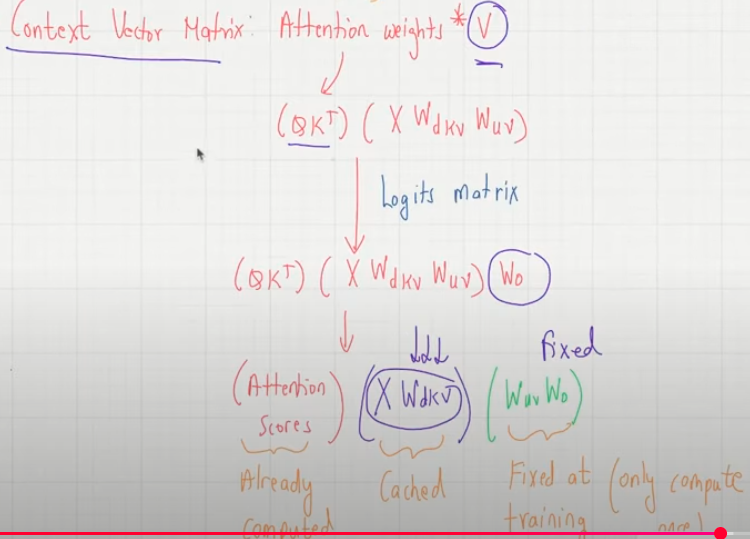 Context Vector Matrix: Attention weights * V
(QK^T) ( X W_dkv W_uv)
Logits matrix
(QK^T) ( X W_dkv W_uv) W_o
fixed
(Attention Scores) (X W_dkv) (W_uv W_o)
Already computed
Cached
Fixed at training (only compute once)